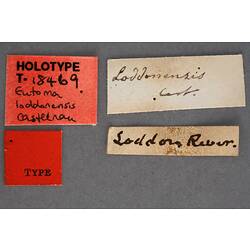 HOLOTYPE
T-18469
Eutoma
loddonensis
Castelnau
Loddonensis
Cast.
TYPE
Loddon River.